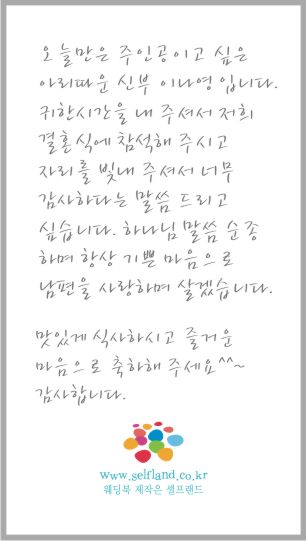 오늘만은 주인공이고 싶은
아리따운 신부 이나영 입니다.
귀한시간을 내 주셔서 저희
결혼식에 참석해 주시고
자리를 빛내 주셔서 너무
감사하다는 말씀 드리고
싶습니다. 하나님 말씀 순종
하며 항상 기쁜 마음으로
남편을 사랑하며 살겠습니다.
맛있게 식사하시고 즐거운
마음으로 축하해 주세요^^~
감사합니다.
www.selfland.co.kr
웨딩북 제작은 셀프랜드